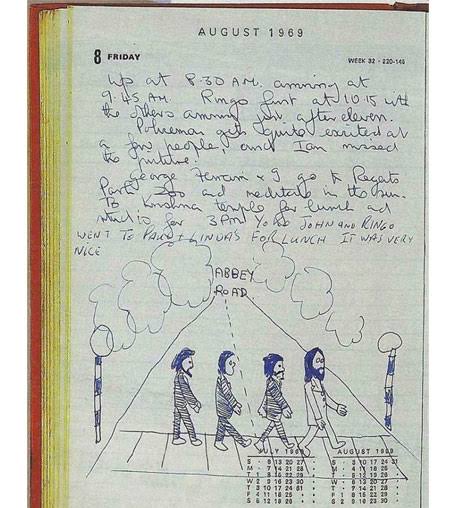 AUGUST 1969
8 FRIDAY
WEEK 32 · 220-145
Up at 8.30 AM. arriving at
9.45 AM. Ringo first at 10.15 with
the others arriving just after eleven.
Policeman gets quite excited at
a few people, and Iain missed
the picture.
George Ferrari & I go to Regents
Park Zoo and meditate in the sun.
To Krishna temple for lunch and
studio for 3 PM YOKO JOHN AND RINGO
WENT TO PAUL + LINDAS FOR LUNCH IT WAS VERY
NICE
ABBEY
ROAD
JULY 1969 AUGUST 1969
S · 6 13 20 27 S · 3 10 17 24 31
M · 7 14 21 28 M · 4 11 18 25
T 1 8 15 22 29 T · 5 12 19 26
W 2 9 16 23 30 W · 6 13 20 27
T 3 10 17 24 31 T · 7 14 21 28
F 4 11 18 25 F 1 8 15 22 29
S 5 12 19 26 S 2 9 16 23 30